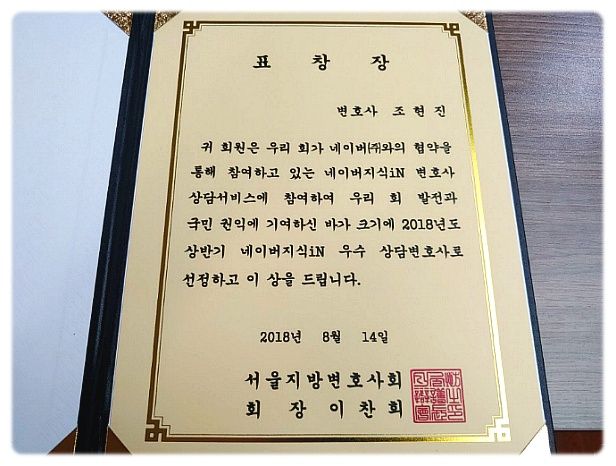 표 창 장
변호사 조현진
귀 회원은 우리 회가 네이버㈜와의 협약을
통해 참여하고 있는 네이버지식iN 변호사
상담서비스에 참여하여 우리 회 발전과
국민 권익에 기여하신 바가 크기에 2018년도
상반기 네이버지식iN 우수 상담변호사로
선정하고 이 상을 드립니다.
2018년 8월 14일
서울지방변호사회
회 장 이 찬 희